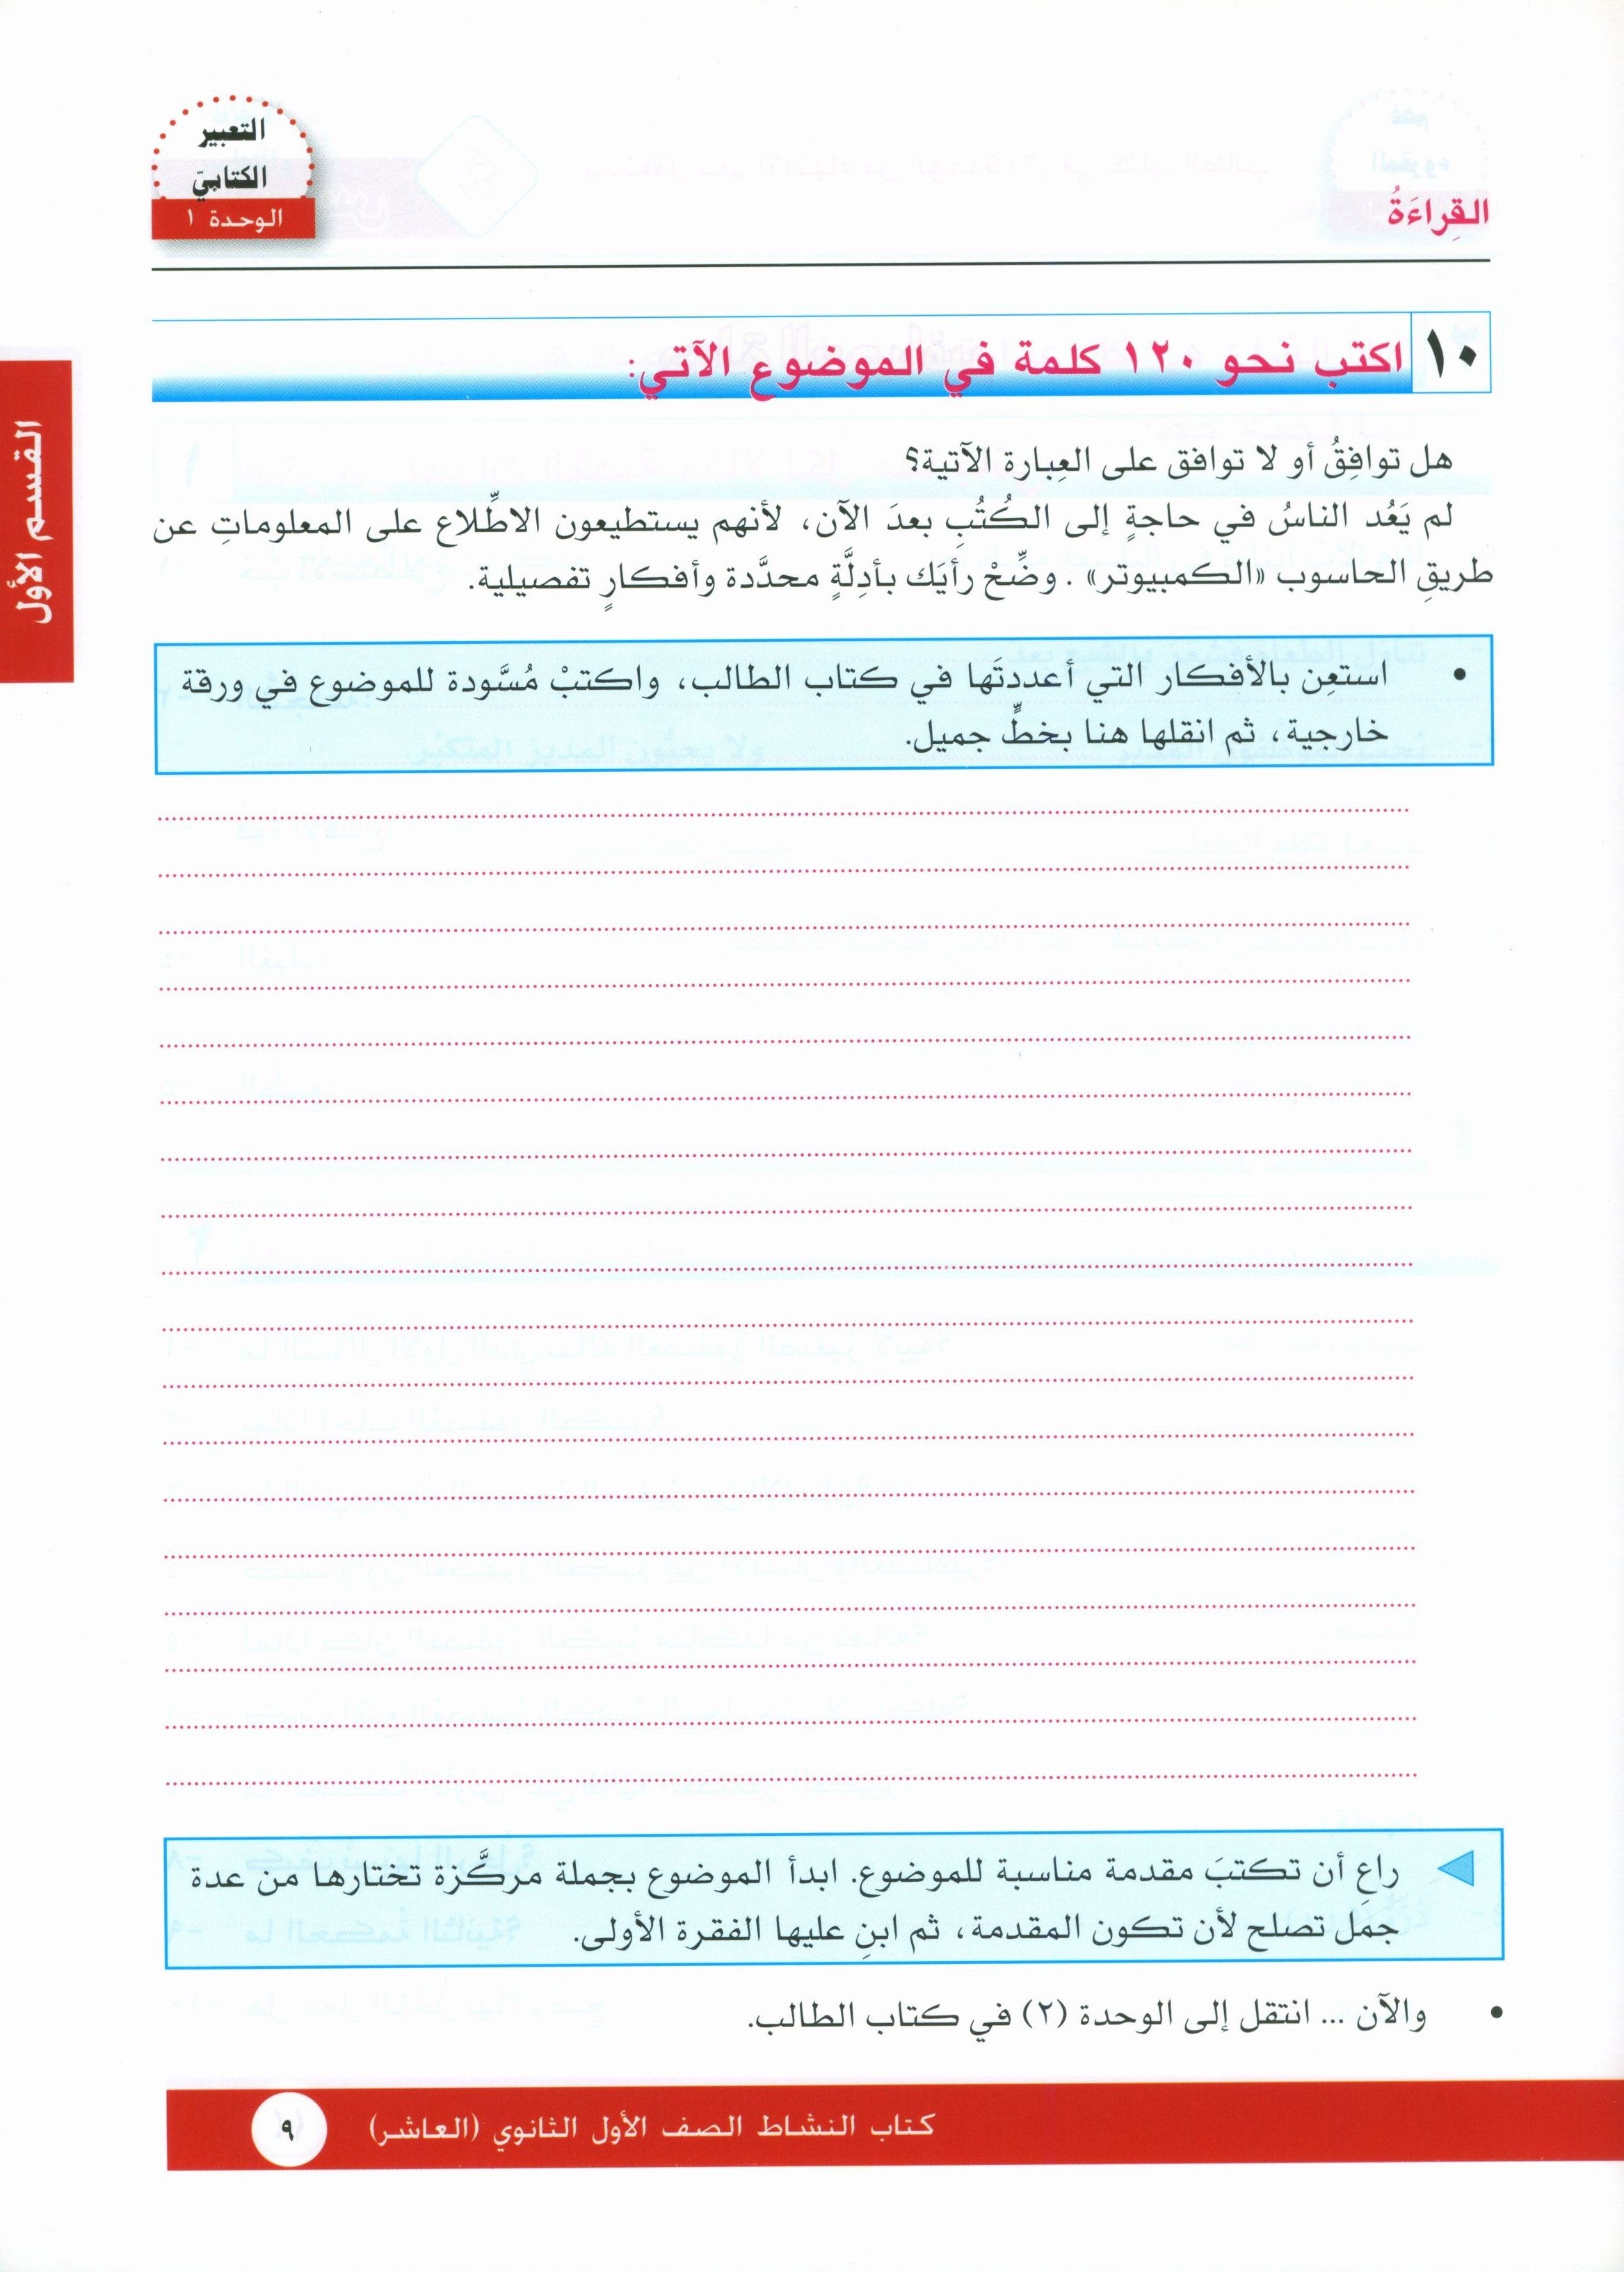 التعبير
الكتابيّ
الوحدة ١
القِراءَةُ
القسم الأول
١٠ اكتب نحو ١٢٠ كلمة في الموضوع الآتي:
هل توافِقُ أو لا توافق على العِبارة الآتية؟
لم يَعُد الناسُ في حاجةٍ إلى الكُتُبِ بعدَ الآن، لأنهم يستطيعون الاطِّلاع على المعلوماتِ عن
طريقِ الحاسوب «الكمبيوتر» . وضِّحْ رأيَك بأدِلَّةٍ محدَّدة وأفكارٍ تفصيلية.
• استعِن بالأفكار التي أعددتَها في كتاب الطالب، واكتبْ مُسَّودة للموضوع في ورقة
خارجية، ثم انقلها هنا بخطٍّ جميل.
راعِ أن تكتبَ مقدمة مناسبة للموضوع. ابدأ الموضوع بجملة مركَّزة تختارها من عدة
جمل تصلح لأن تكون المقدمة، ثم ابنِ عليها الفقرة الأولى.
• والآن ... انتقل إلى الوحدة (٢) في كتاب الطالب.
كتاب النشاط الصف الأول الثانوي (العاشر) ٩